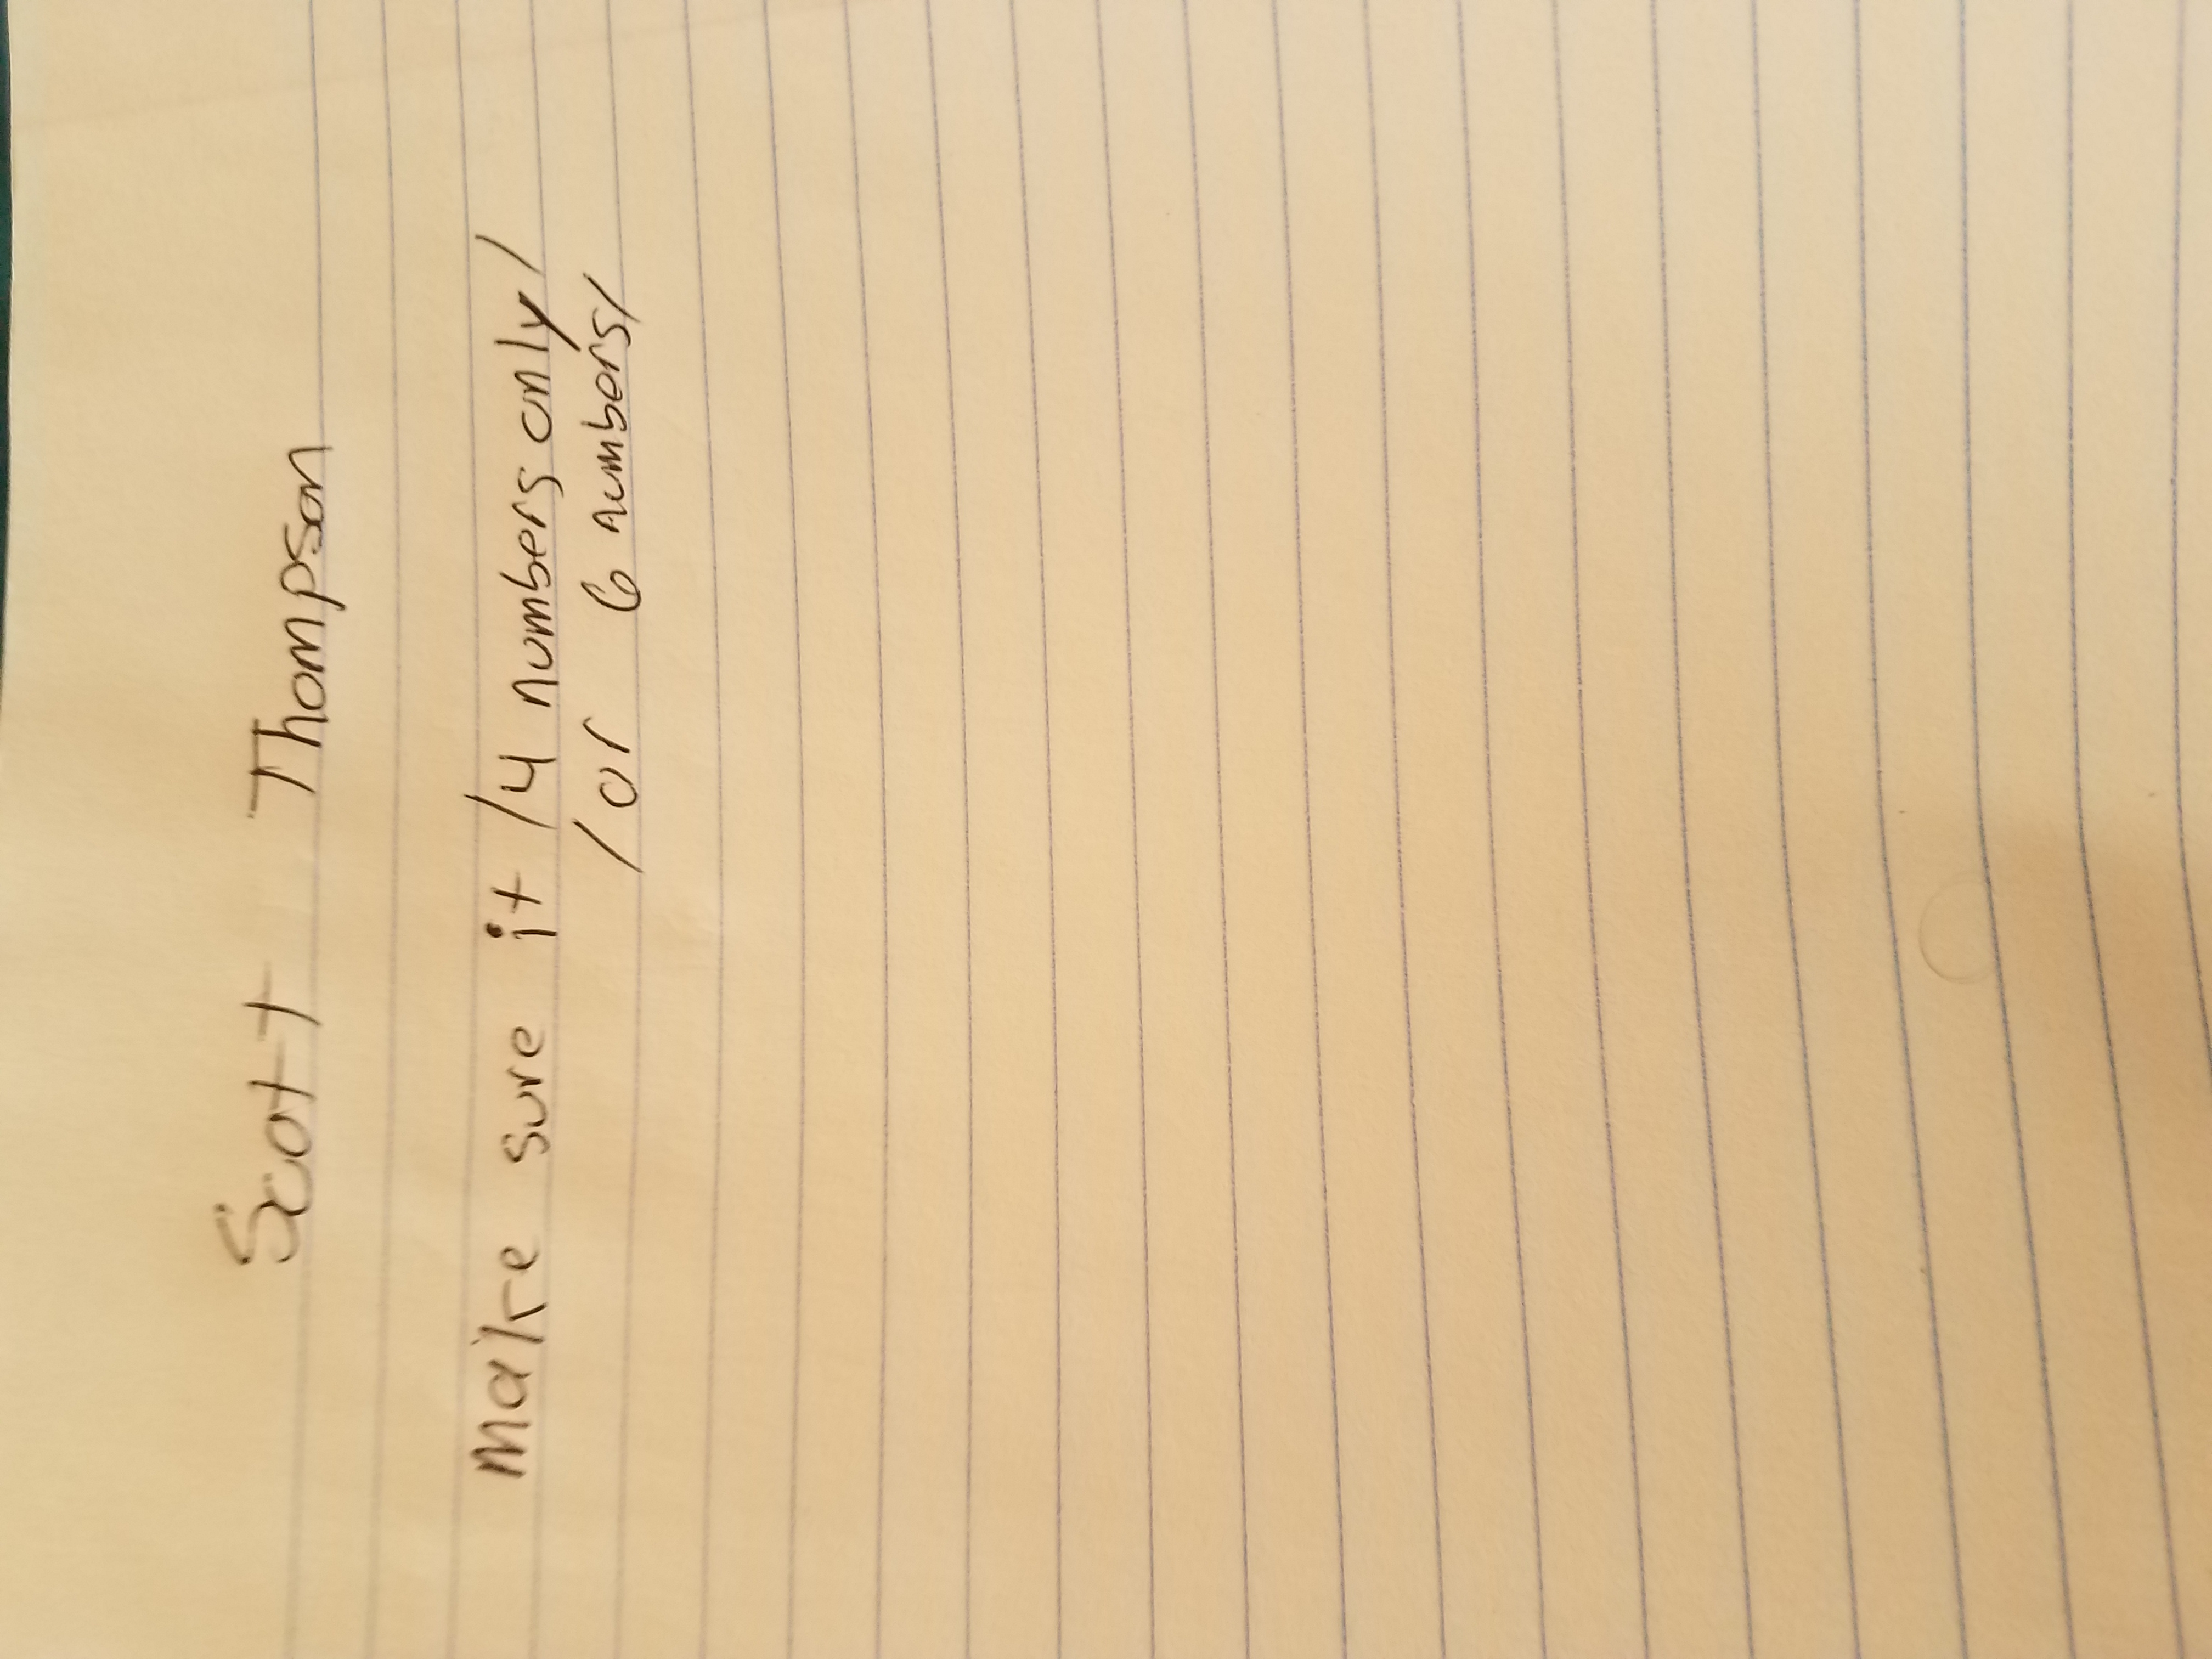 Scott Thompson
make sure it /4 numbers only/
/or 6 numbers/